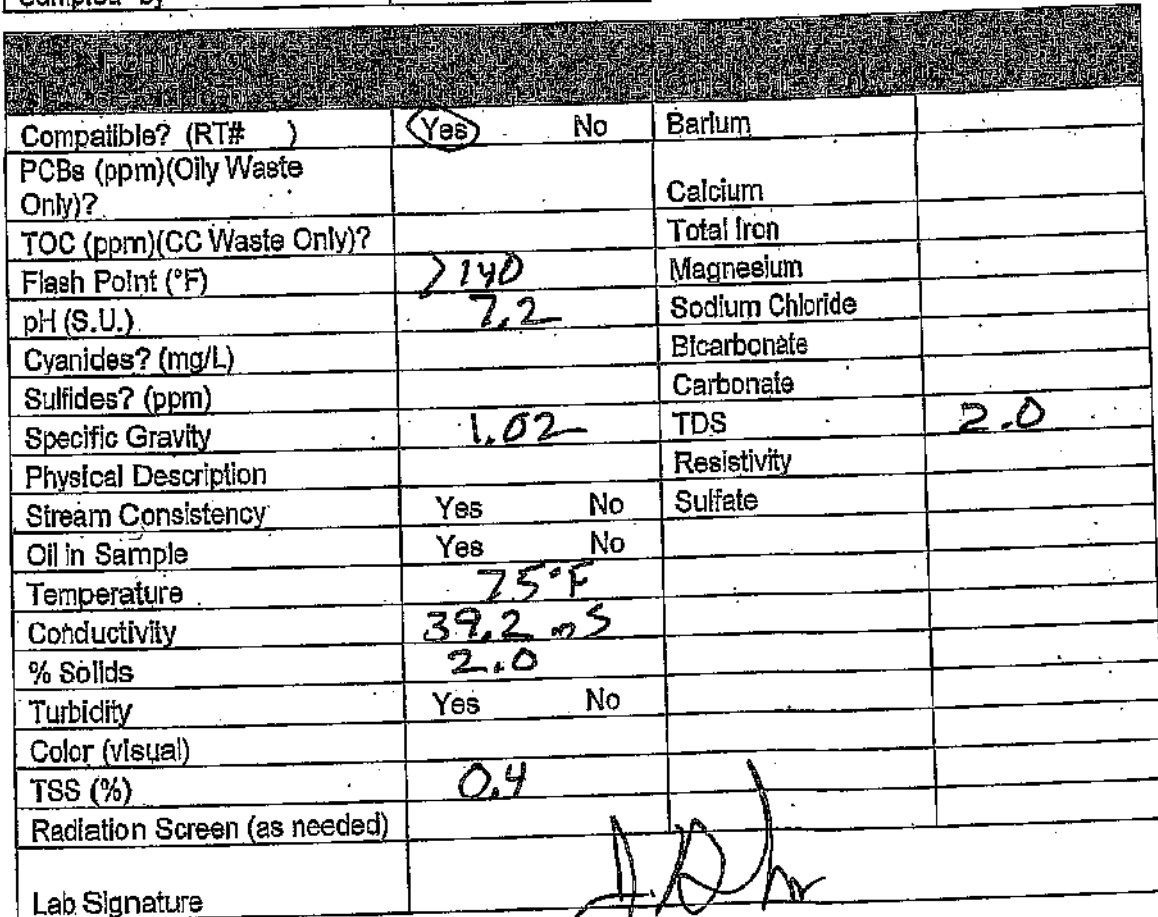 Sampled by
INFORMATION
Compatible? (RT# ) Yes No Barium
PCBs (ppm)(Oily Waste
Only)? Calcium
TOC (ppm)(CC Waste Only)? Total Iron
Flash Point (°F) >140 Magnesium
pH (S.U.) 7.2 Sodium Chloride
Cyanides? (mg/L) Bicarbonate
Sulfides? (ppm) Carbonate
Specific Gravity 1.02 TDS 2.0
Physical Description Resistivity
Stream Consistency Yes No Sulfate
Oil in Sample Yes No
Temperature 75°F
Conductivity 39.2 mS
% Solids 2.0
Turbidity Yes No
Color (visual)
TSS (%) 0.4
Radiation Screen (as needed)
Lab Signature